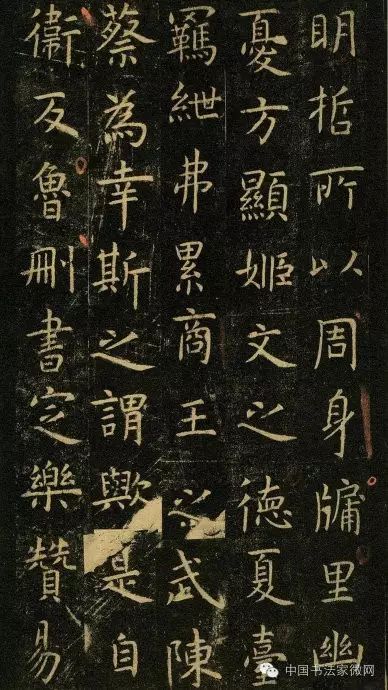 明哲所以周身牖里幽
憂方顯姬文之德夏臺
羈紲弗累商王之武陳
蔡為幸斯之謂歟是自
衛反魯刪書定樂贊易
中国书法家微网